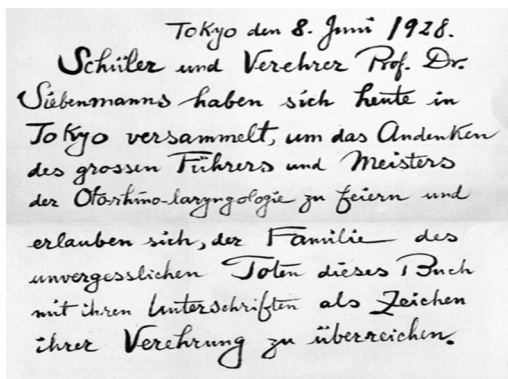 Tokyo den 8. Juni 1928.
Schüler und Verehrer Prof. Dr.
Siebenmanns haben sich heute in
Tokyo versammelt, um das Andenken
des grossen Führers und Meisters
der Oto-rhino-laryngologie zu feiern und
erlauben sich, der Familie des
unvergesslichen Toten dieses Buch
mit ihren Unterschriften als Zeichen
ihrer Verehrung zu überreichen.